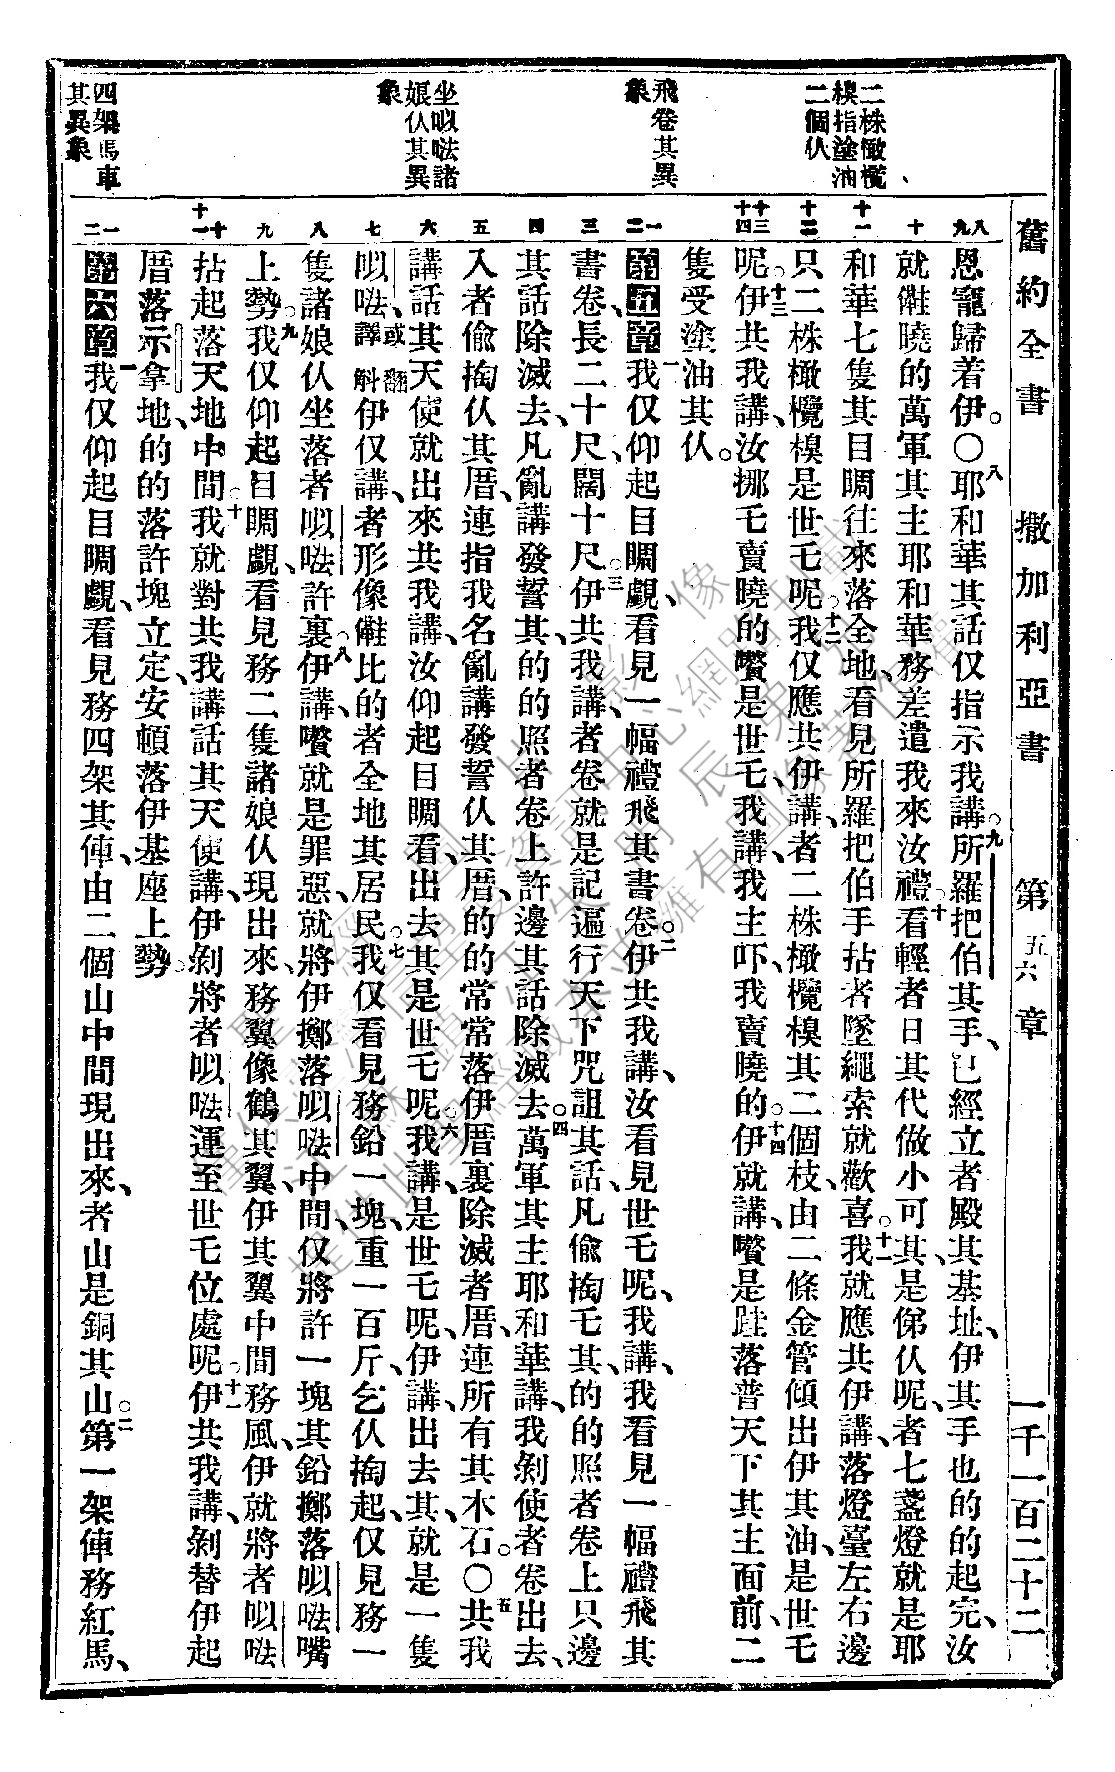 舊約全書 撒加利亞書 第五六章 一千一百二十二
二株橄欖
模指塗油
二個伙
飛卷其異
象
坐㕽𠵽諸
娘伙其異
象
四架馬車
其異象
八九 恩寵歸着伊。〇八耶和華其話仅指示我講。九所羅把伯其手、已經立者殿其基址、伊其手也的的起完、汝
十 就㒰曉的萬軍其主耶和華、務差遣我來汝禮。十看輕者日其代做小可其、是俤伙呢、者七盞燈就是耶
十一 和華七隻其目睭往來落全地、看見所羅把伯手拈者墜繩索就歡喜。十一我就應共伊講、落燈臺左右邊
十二 只二株橄欖模是世乇呢。十二我仅應共伊講、者二株橄欖模其二個枝、由二條金管傾出伊其油、是世乇
十三十四 呢。十三伊共我講、汝挪乇賣曉的囋是世乇、我講、我主吓、我賣曉的。十四伊就講、囋是跬落普天下其主面前、二
隻受塗油其伙。
一二 第五章 一我仅仰起目睭覷、看見一幅禮飛其書卷。二伊共我講、汝看見世乇呢、我講、我看見一幅禮飛其
三 書卷、長二十尺、闊十尺。三伊共我講、者卷就是記遍行天下咒詛其話、凡偷掏乇其、的的照者卷上只邊
四 其話除滅去、凡亂講發誓其、的的照者卷上許邊其話除滅去。四萬軍其主耶和華講、我剝使者卷出去、
五 入者偷掏伙其厝、連指我名亂講發誓伙其厝、的的常常落伊厝裏除滅者厝、連所有其木石。〇五共我
六 講話其天使就出來共我講、汝仰起目睭看、出去其是世乇呢。六我講、是世乇呢、伊講、出去其、就是一隻
七 㕽𠵽、或翻譯斛 伊仅講、者形像㒰比的者全地其居民。七我仅看見務鉛一塊、重一百斤、乞伙掏起、仅見務一
八 隻諸娘伙坐落者㕽𠵽許裏。八伊講、囋就是罪惡、就將伊擲落㕽𠵽中間、仅將許一塊其鉛擲落㕽𠵽嘴
九 上勢。九我仅仰起目睭覷、看見務二隻諸娘伙現出來、務翼像鶴其翼、伊其翼中間務風、伊就將者㕽𠵽
十十一 拈起落天地中間。十我就對共我講話其天使講、伊剝將者㕽𠵽運至世乇位處呢。十一伊共我講、剝替伊起
厝落示拿地、的的落許塊立定、安頓落伊基座上勢。
一二 第六章 一我仅仰起目睭覷、看見務四架其俥、由二個山中間現出來、者山是銅其山。二第一架俥務紅馬、